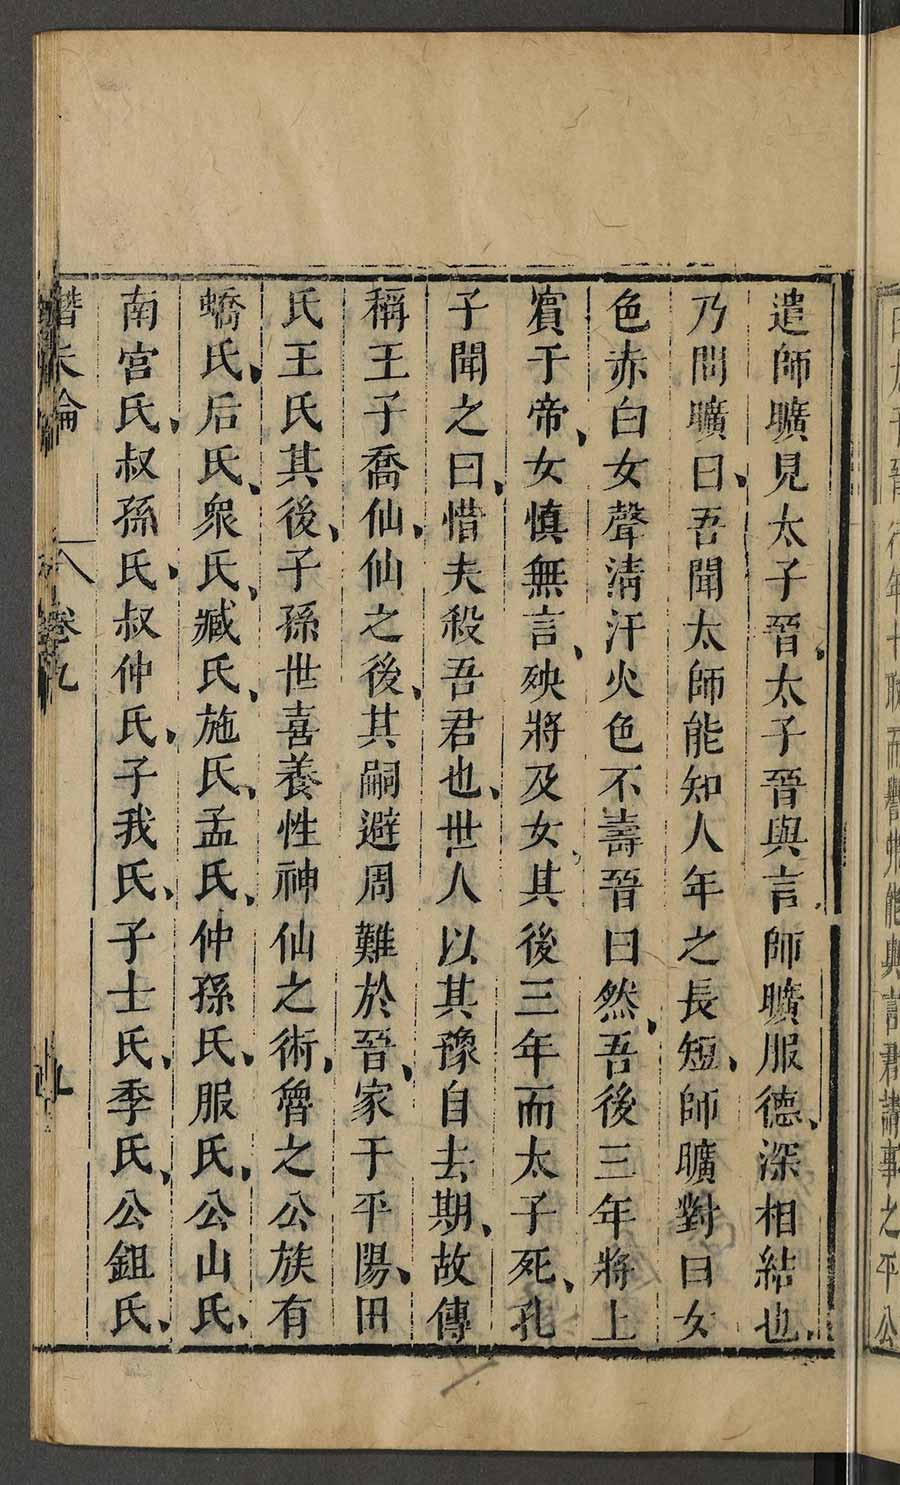 遣師曠見太子晉太子晉與言師曠服德、深相結也、
乃問曠曰、吾聞太師能知人年之長短、師曠對曰女
色赤白女聲清汗火色不壽晉曰然、吾後三年將上
賔于帝、女慎無言、殃將及女、其後三年而太子死、孔
子聞之曰、惜夫殺吾君也、世人以其豫自去期、故傳
稱王子喬仙、仙之後、其嗣避周難於晉、家于平陽、田
氏王氏其後、子孫世喜養性神仙之術、魯之公族有
蟜氏、后氏、衆氏、臧氏、施氏、孟氏、仲孫氏、服氏、公山氏、
南宮氏、叔孫氏、叔仲氏、子我氏、子士氏、季氏、公鉏氏、
卷九